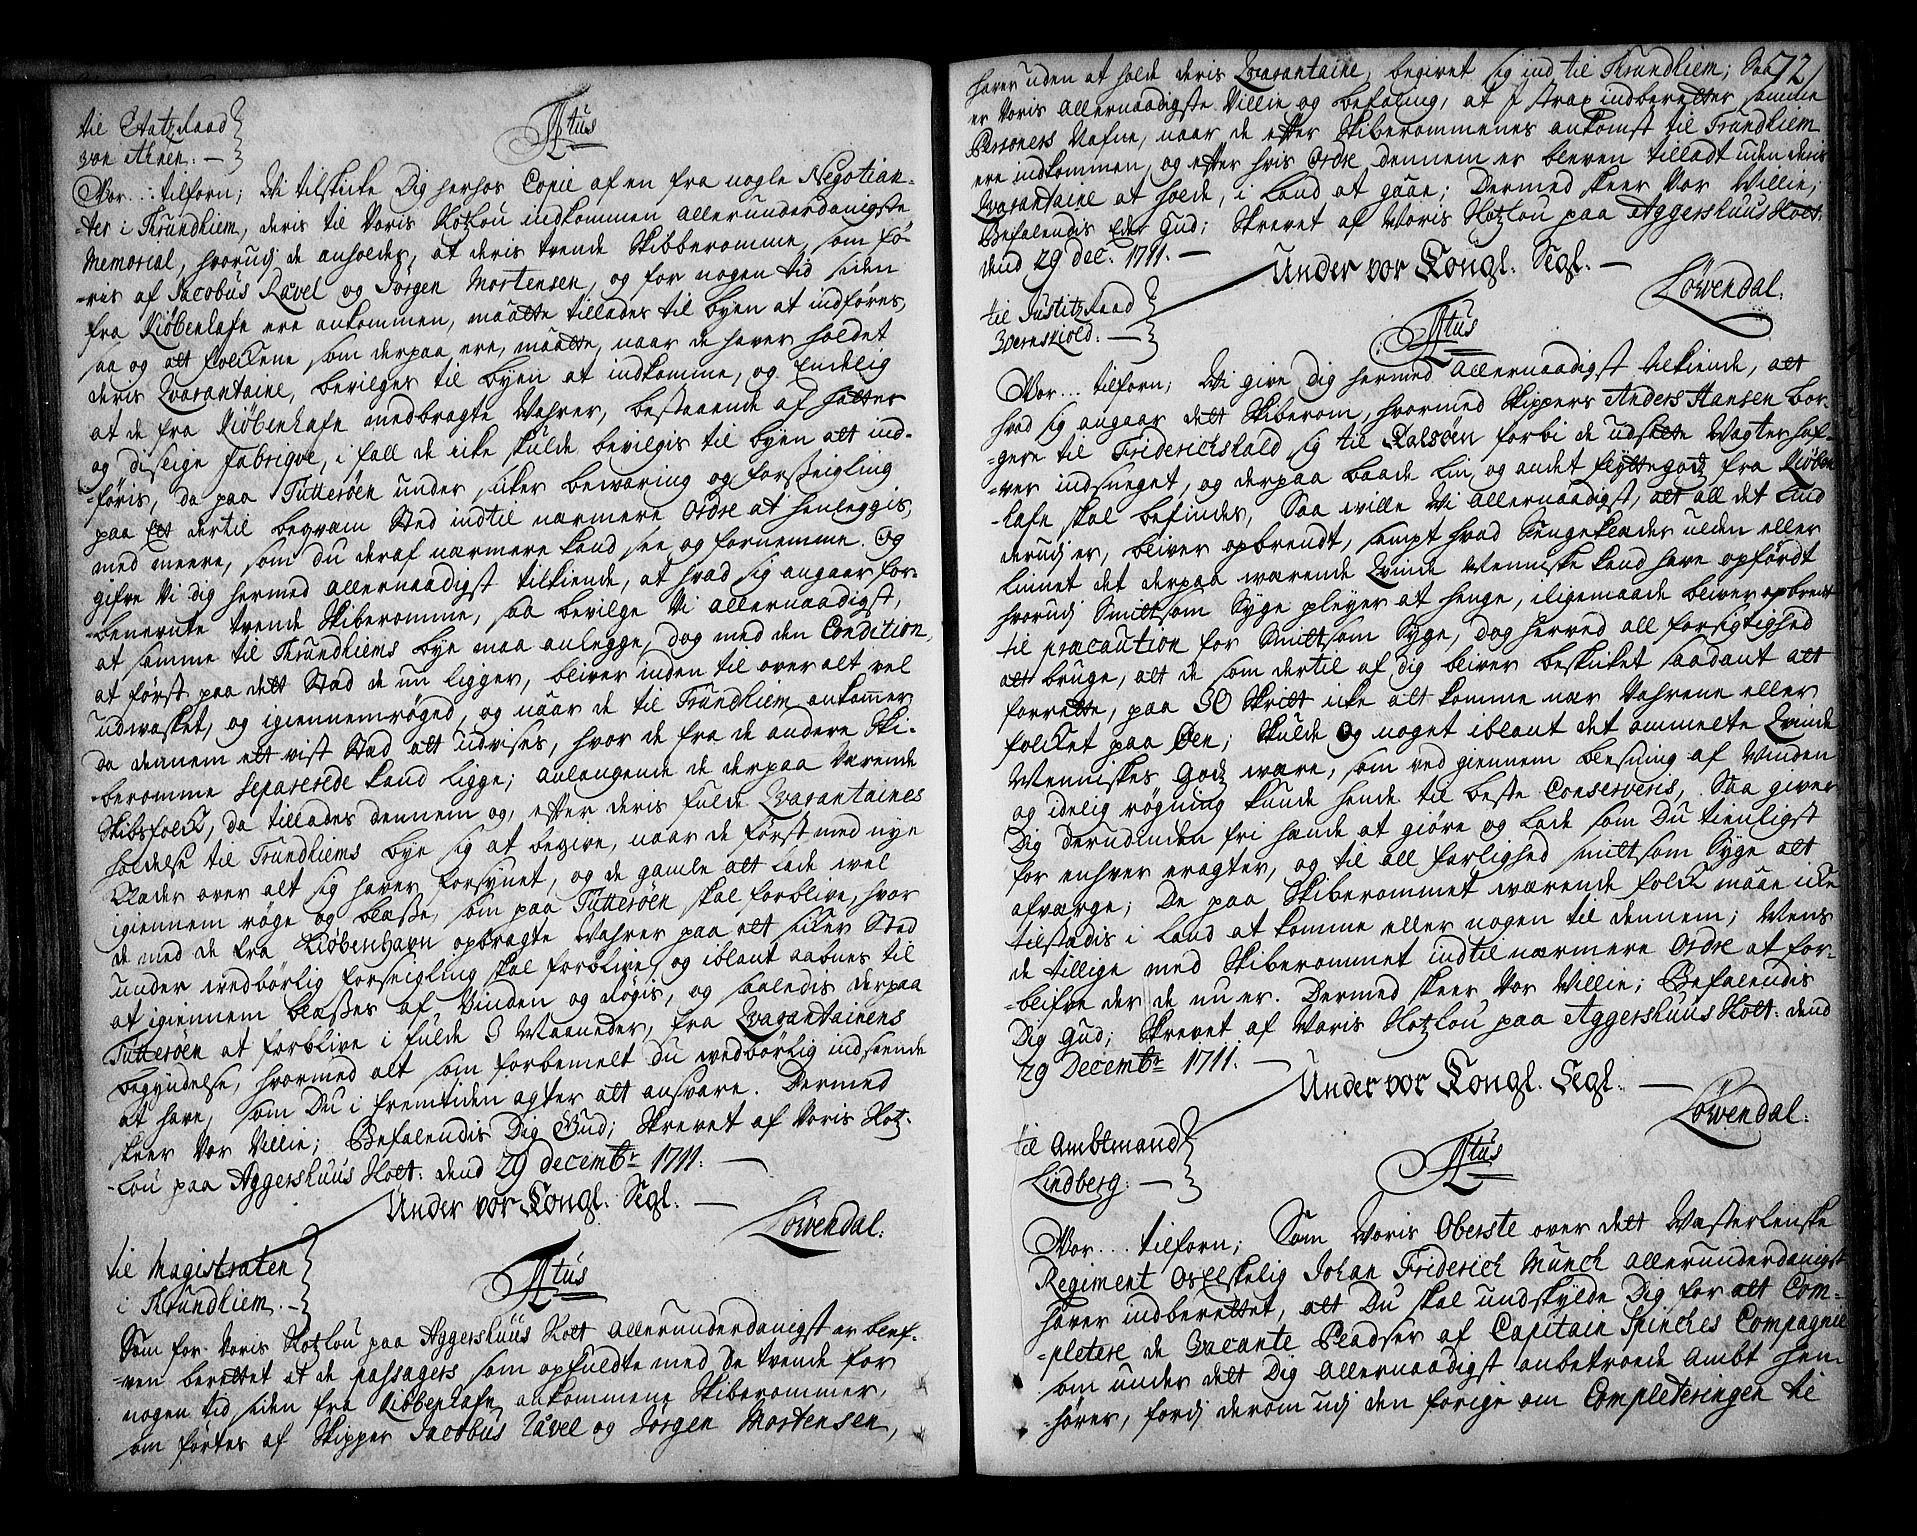 til Etatzraad
von Ahnen. —
Ftus
Vor... tilforn; Wi tilskicke Dig herhos Copie af en fra nogle Negotian-
-ter i Thrundhiem, deris til Voris Slotzlou indkommen allerunderdanigste
Memorial, hvorudj de anholder, at deris trende Skibberomme, som fö-
-ris af Jacobus Ravel og Jörgen Mortensen, og for nogen tid siden
fra Kiöbenhafn ere ankommen, maatte tillades til byen at indföres,
saa og alt folckene som derpaa ere, maatte, naar de hafver holdet
deris Qvarantaine, bevilges til byen at indkomme, og Endelig
at de fra Kiöbenhafn medbragte Wahrer, bestaaende af hatter
og disligge Fabriqve, i fall de icke skulde bevilgis til byen alt ind-
-föris, da paa Tutteröen under sicker bewaring og forseigling
paa Et dertil beqvam Sted indtil nærmere Ordre at henleggis,
med meere, som du deraf nærmere kand see og fornemme. Og
gifve Vi dig hermed allernaadigst tilkiende, at hvad sig angaar for-
-benevnte trende Skiberomme, saa bevilge Vi allernaadigst,
at samme til Thrundhiems bye maa anlegge, dog med den Condition,
at först paa dett Sted de nu ligger, bliver inden til over alt vel
udvasket, og igiennemröged, og naar de til Trundhiem ankommer
da dennem ett vist Sted alt udvises, hvor de fra de andere Ski-
-beromme Separerede kand ligge; anlangende de derpaa Værende
Skibsfolck, da tillades dennem og, efter deris fulde Qvarantaines
holdelse til Trundhiems bye sig at begive, naar de först med nye
Klæder over alt sig haver forsynet, og de gamle alt lade vel
igiennem röge og blæse, som paa Tutteröen skal forblive, hvor
de med de fra Kiöbenhavn opbragte Wahrer paa et sicker Sted
under wedbörlig forseigling skal forblive, og iblant aabnes til
at igiennem blæses af Vinden og Rögis, og saaledis derpaa
Tutteröen at forblive i fulde 3 Maaneder, fra Qvarantainens
begyndelse, hvormed alt som forbemelt Du wedbörlig indseende
at have, som Du i fremtiden agter alt ansvare. Dermed
skeer Vor Villie; Befalendis Dig Gud; Skrevet af Voris Slotz-
-lou paa Aggershuus Slott: dend 29 decembr 1711. —
Under vor Kongl. Segl. —
Löwendal.
til Magistraten
i Thrundhiem. —
Ftus
Som for Voris Slotzlou paa Aggershuus Slott allerunderdanigst er blef-
-ven berettet at de passagers som opfuldte med de trende for
nogen tid siden fra Kiöbenhafn ankommene Skiberommer,
som förtes af Skipper Jacobus Ravel og Jörgen Mortensen,
72
haver uden at holde deris Qvarantaine, begivet sig ind til Thrundhiem; Saa
er Voris allernaadigste Villie og befaling, at I strax indberetter samme
Personers Nafne, naar de efter Skiberommenes ankomst til Trundhiem
ere indkommen, og efter hvis Ordre dennem er bleven tilladt uden deris
Qvarantaine at holde, i Land at gaae; Dermed skeer Vor Villie;
Befalendis Eder Gud; Skrevet af Voris Slotzlou paa Aggershuus Slott.
dend 29 dec. 1711. —
Under vor Kongl. Segl. —
Löwendal.
til Justitzraad
Wernskiold. —
Ftus
Vor... tilforn; Wi give Dig hermed allernaadigst tilkiende, alt
hvad sig angaar dett Skiberom, hvormed Skippers Anders Hansen bor-
-gere til Friderichshald sig til forbi de udsatte Wagter haf-
-ver indsneget, og derpaa baade Lin og andet flyttegodz fra Kiöben-
-hafn skal befindes, Saa wille Vi allernaadigst, at all det Lind
derudj er, bliver opbrendt, sampt hvad Sengeklæder ulden eller
linnet det derpaa værende Qvinde Menniske kand have opfördt
hvorudj Smittsom Syge pleyer at henge, iligemaade bliver opbrendt
til præcaution for Smittsom Syge, dog herved all forsigtighed
alt bruge, alt de som dertil af dig bliver beskicket saadant alt
forrette, paa 30 Skritt icke alt komme nær Vahrene eller
folcket paa Öen; Skulde og noget iblant det ommelte Qvinde
Menniskes Godz være, som ved giennem blesning af Winden
og idelig rögning kunde hende til beste Conserveris, Saa giver
Dig derudinden fri hænde at giöre og lade som Du tienligst
for enhver eragter, og til all farlighed smittsom Syge alt
afværge; De paa Skiberommet værende folck maae icke
tilstædis i Land at komme eller nogen til dennem; Mens
de tillige med Skiberommet indtil nærmere Ordre at for-
-blifve der de nu er. Dermed skeer Vor Villie; Befalendis
Dig Gud; Skrevet af Voris Slotzlou paa Aggershuus Slott: dend
29 Decembr 1711. —
Under vor Kongl. Segl. —
Löwendal.
til Ambtmand
Lindberg. —
Ftus
Vor... tilforn; Som Voris Oberste over dett Wasterlenske
Regiment Os Elskelig Johan Friderich Munch allerunderdanigst
haver indberettet, alt Du skal undskylde Dig for alt Com-
-pletere de Vacante Pladser af Capitain Spinches Compagnie
som under dett Dig allernaadigst anbetroede Ambt hen-
-hörer, fordj derom udj den forige om Completeringen til